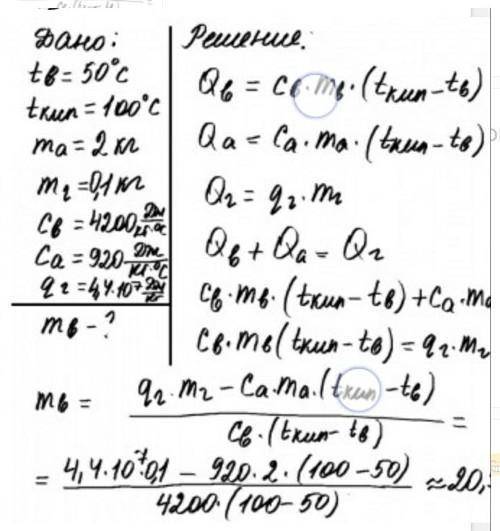 Дано:
tв = 50°C
tкип = 100°C
mа = 2 кг
mг = 0,1 кг
Cв = 4200 Дж/кг·°C
Cа = 920 Дж/кг·°C
qг = 4,4·10⁷ Дж/кг
mв - ?
Решение:
Qв = Cв·mв·(tкип - tв)
Qа = Cа·mа·(tкип - tв)
Qг = qг·mг
Qв + Qа = Qг
Cв·mв·(tкип - tв) + Cа·mа
Cв·mв(tкип - tв) = qг·mг
mв = (qг·mг - Cа·mа·(tкип - tв)) / (Cв·(tкип - tв)) =
= (4,4·10⁷·0,1 - 920·2·(100-50)) / (4200·(100-50)) ≈ 20,